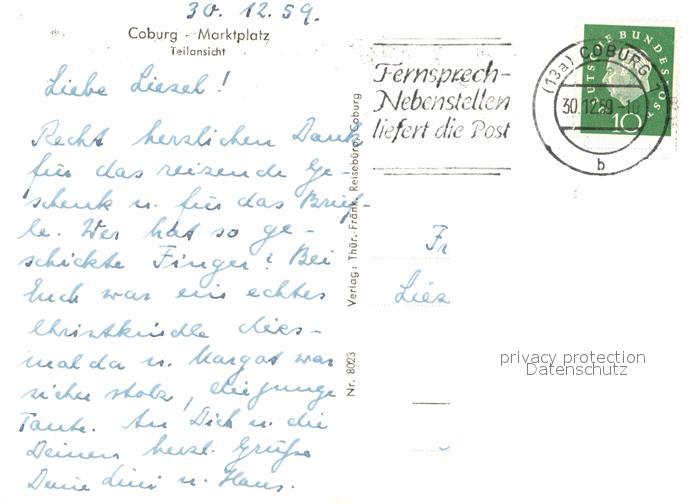 30. 12. 59.
Coburg - Marktplatz
Teilansicht
Liebe Liesel!
Recht herzlichen Dank
für das reizende Ge-
schenk u. für das Brief-
le. Wer hat so ge-
schickte Finger? Bei
Euch war ein echtes
Christkindle dies-
mal da u. Margot war
sicher stolz, die junge
Tante. An Dich u. die
Deinen herzl. Grüße
Deine Lini u. Hans.
Verlag: Thür. Fränk. Reisebüro, Coburg
Nr. 8023
Fernsprech-
Nebenstellen
liefert die Post
(13a) COBURG 1
30.12.59-10
b
DEUTSCHE BUNDESPOST
10
Fr
Lies
privacy protection
Datenschutz